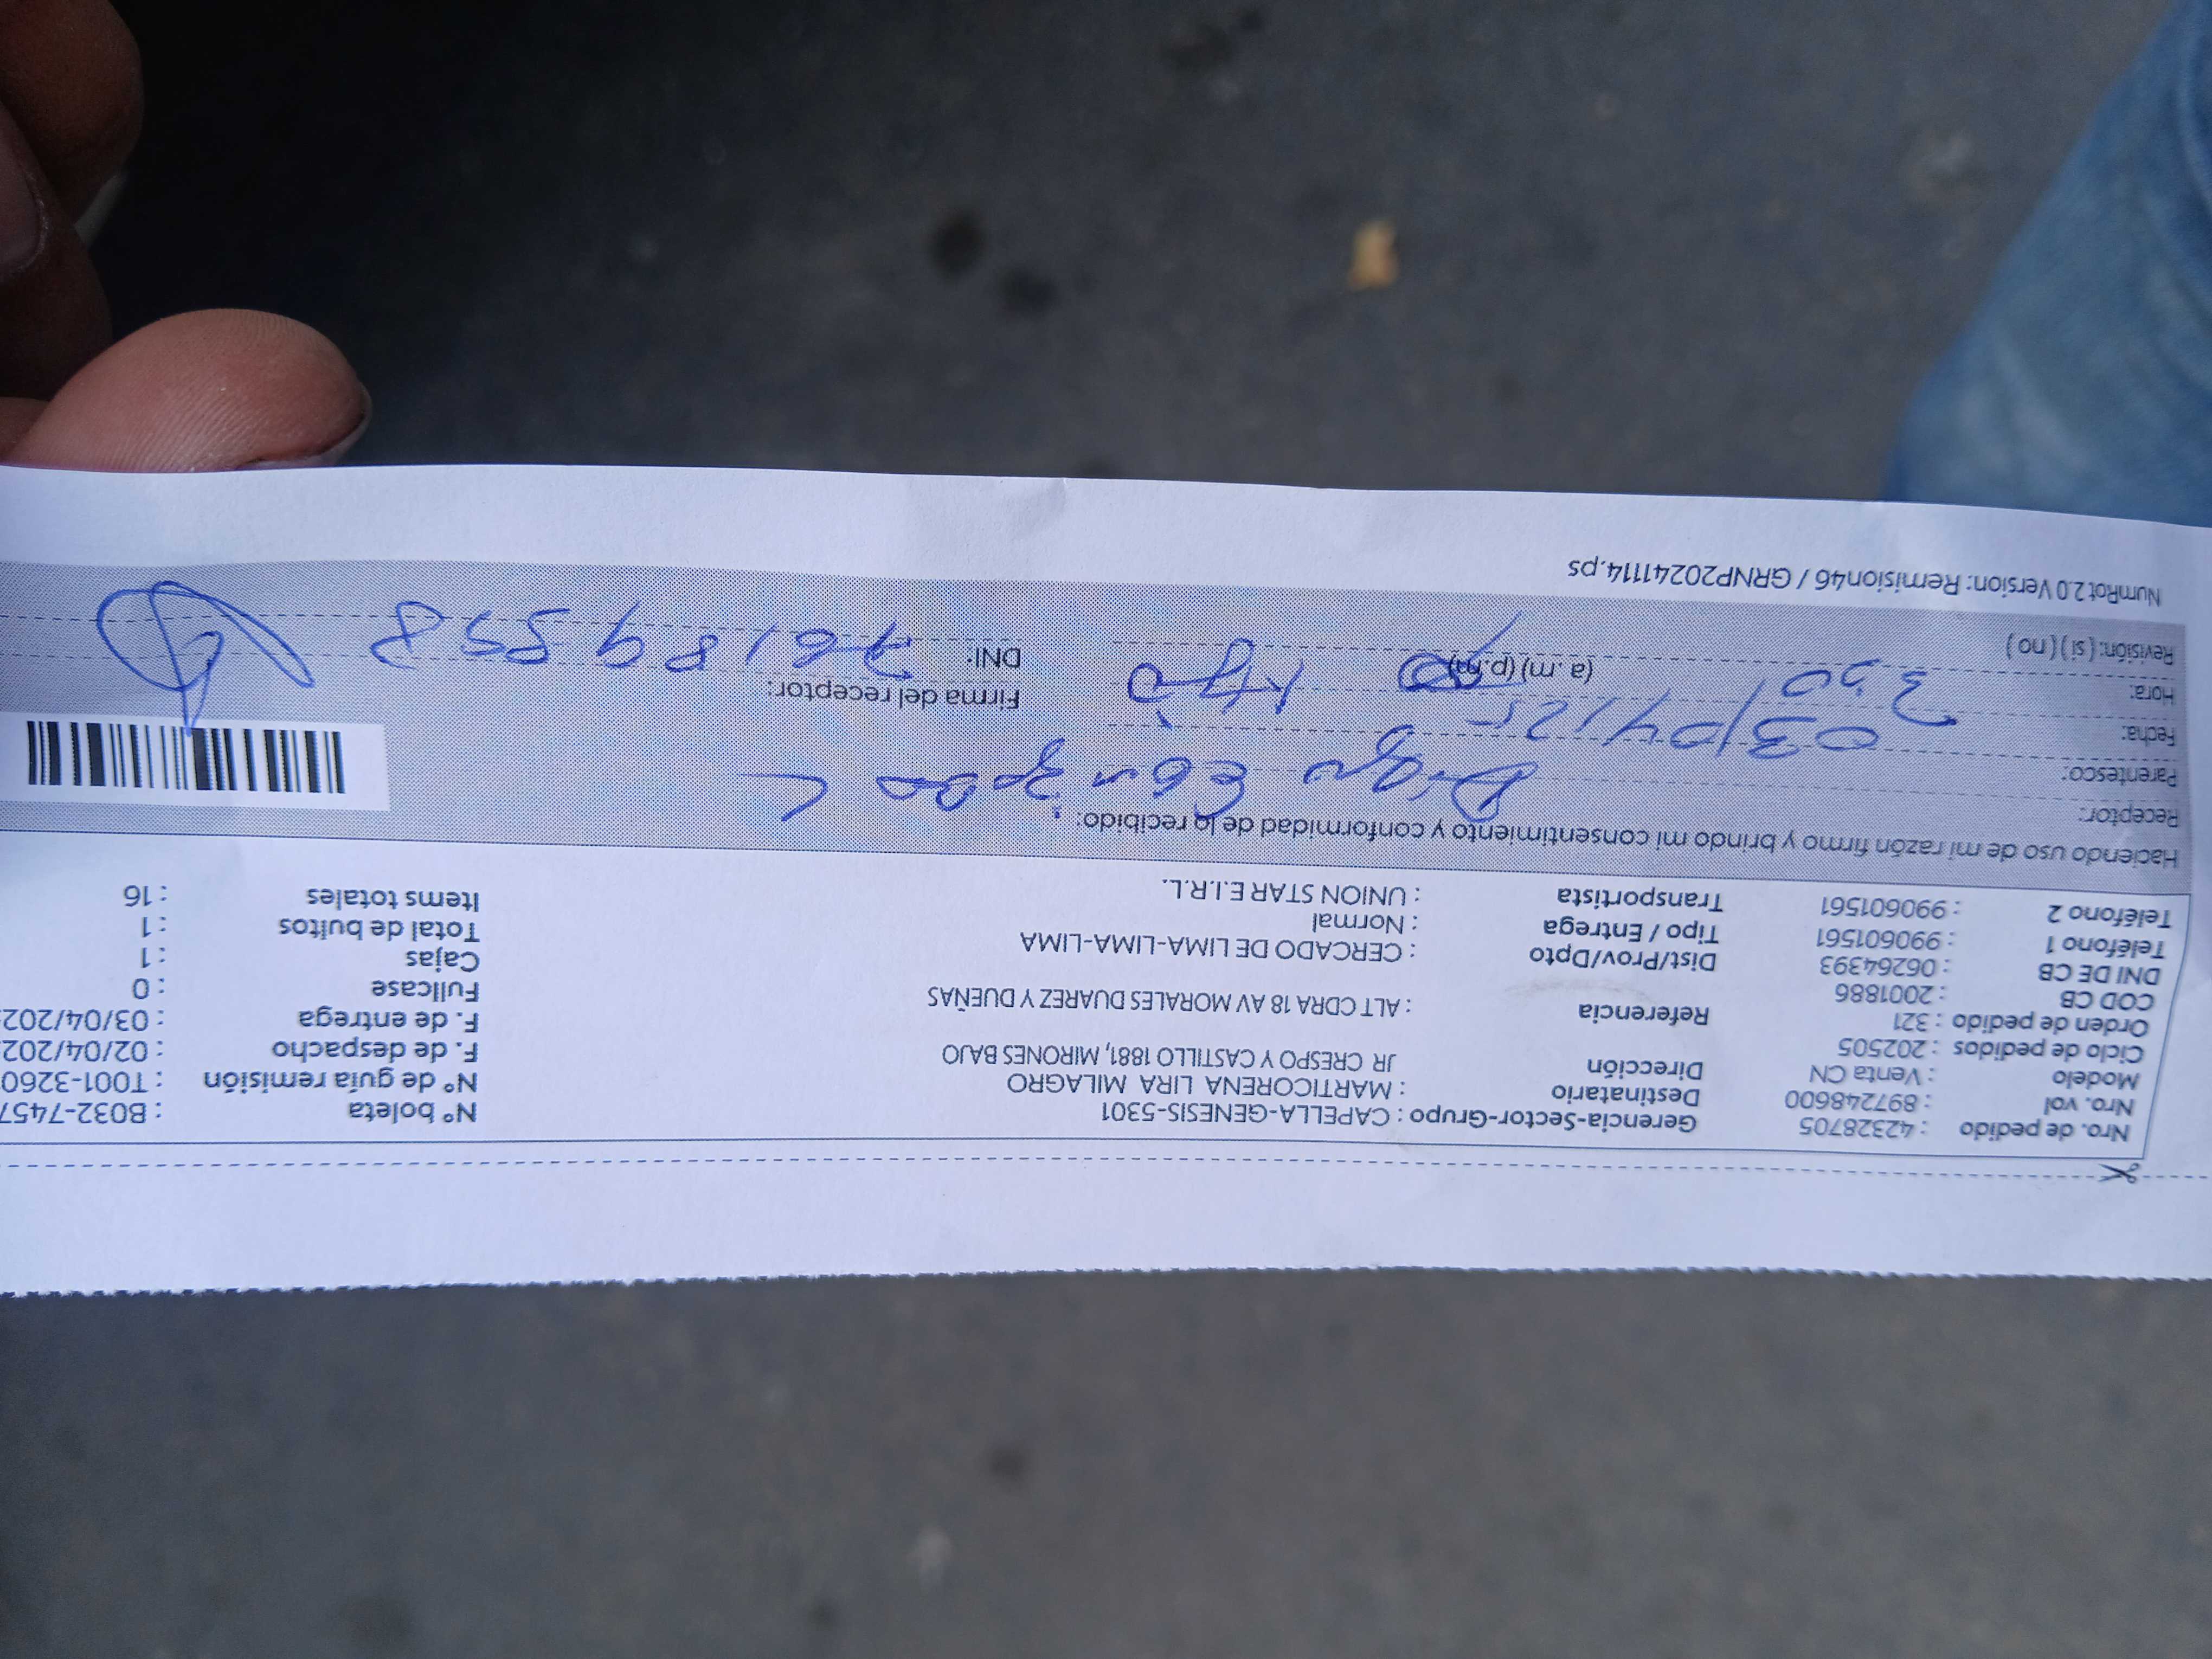 Nro. de pedido : 42328705 Gerencia-Sector-Grupo : CAPELLA-GENESIS-5301 N° boleta : B032-7457
Nro. vol : 897248600 Destinatario : MARTICORENA LIRA MILAGRO N° de guía remisión : T001-3260
Modelo : Venta CN Dirección JR CRESPO Y CASTILLO 1881, MIRONES BAJO F. de despacho : 02/04/202
Ciclo de pedidos : 202505 F. de entrega : 03/04/202
Orden de pedido : 321 Referencia : ALT CDRA 18 AV MORALES DUAREZ Y DUEÑAS Fullcase : 0
COD CB : 2001886 Cajas : 1
DNI DE CB : 06264393 Dist/Prov/Dpto : CERCADO DE LIMA-LIMA-LIMA Total de bultos : 1
Teléfono 1 : 990601561 Tipo / Entrega : Normal Items totales : 16
Teléfono 2 : 990601561 Transportista : UNION STAR E.I.R.L.
Haciendo uso de mi razón firmo y brindo mi consentimiento y conformidad de lo recibido:
Receptor:
Parentesco:
Fecha: 03/04/25
Hora: 3:00 (a.m) (p.m) Firma del receptor:
Revisión: (si) (no) DNI:
NumRot 2.0 Version: Remision46 / GRNP20241114.ps